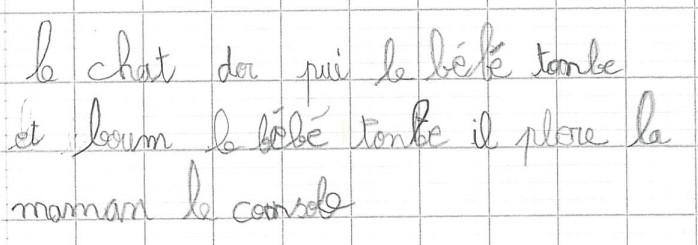 le chat dor pui le bébé tombe
et boum le bébé tonbe il plore la
maman le console